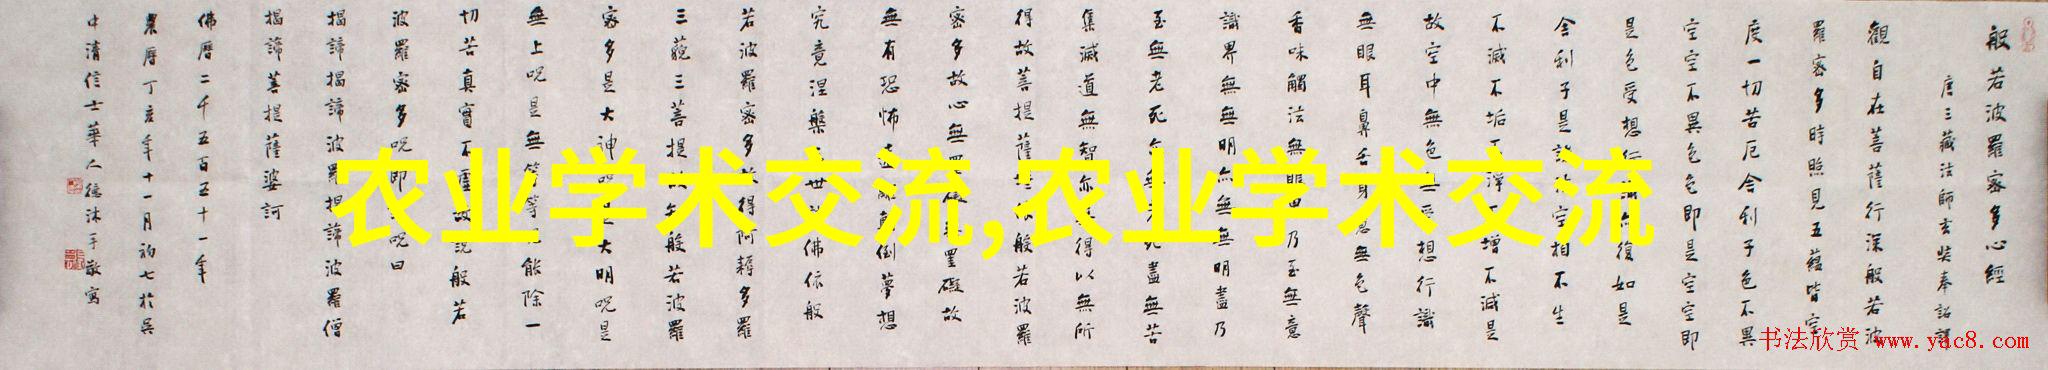 般若波羅密多心經
唐三藏法師玄奘奉詔譯
觀自在菩薩行深般若波
羅密多時照見五蘊皆空
度一切苦厄舍利子色不異
空空不異色色即是空空即
是色受想行識亦復如是
舍利子是諸法空相不生
不滅不垢不淨不增不減是
故空中無色無受想行識
無眼耳鼻舌身意無色聲
香味觸法無眼界乃至無意
識界無無明亦無無明盡乃
至無老死亦無老死盡無苦
集滅道無智亦無得以無所
得故菩提薩埵依般若波羅
密多故心無罣礙無罣礙故
無有恐怖遠離顛倒夢想
究竟涅槃三世諸佛依般
若波羅密多故得阿耨多羅
三藐三菩提故知般若波羅
密多是大神呪是大明呪是
無上呪是無等等呪能除一
切苦真實不虛故說般若
波羅密多呪即說呪曰
揭諦揭諦波羅揭諦波羅僧
揭諦菩提薩婆訶
佛曆二千五百五十一年
農曆丁亥年十一月初七於吳
中清信士華人德沐手敬寫
农业学术交流,农业学术交流
书法欣赏 www.yac8.com